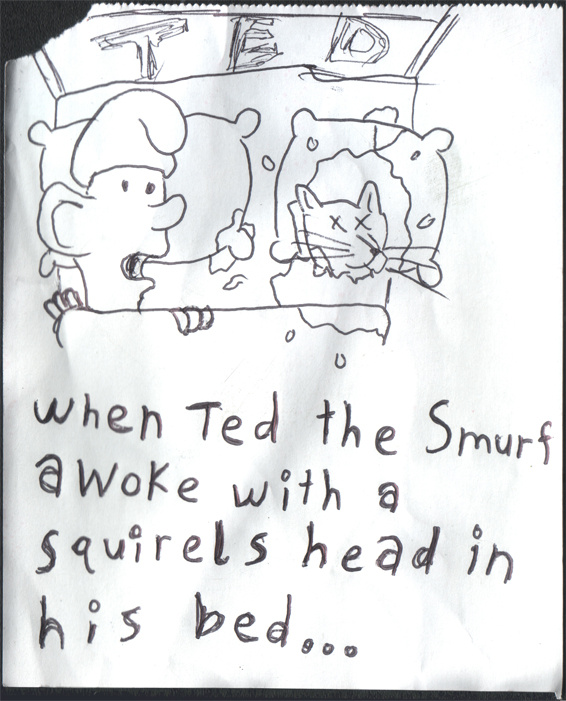 TED
when Ted the Smurf
awoke with a
squirels head in
his bed...